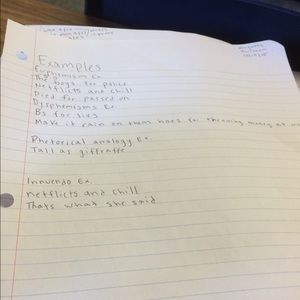 Examples
Euphemism Ex.
The boys for police
Netflicts and chill
Died for passed on
Dysphemisms Ex
Bs for lies
Make it rain on them hoes for throwing money at
Rhetorical anology Ex.
Tall as giffraffe
Innuendo Ex.
netflicts and chill
Thats what she said